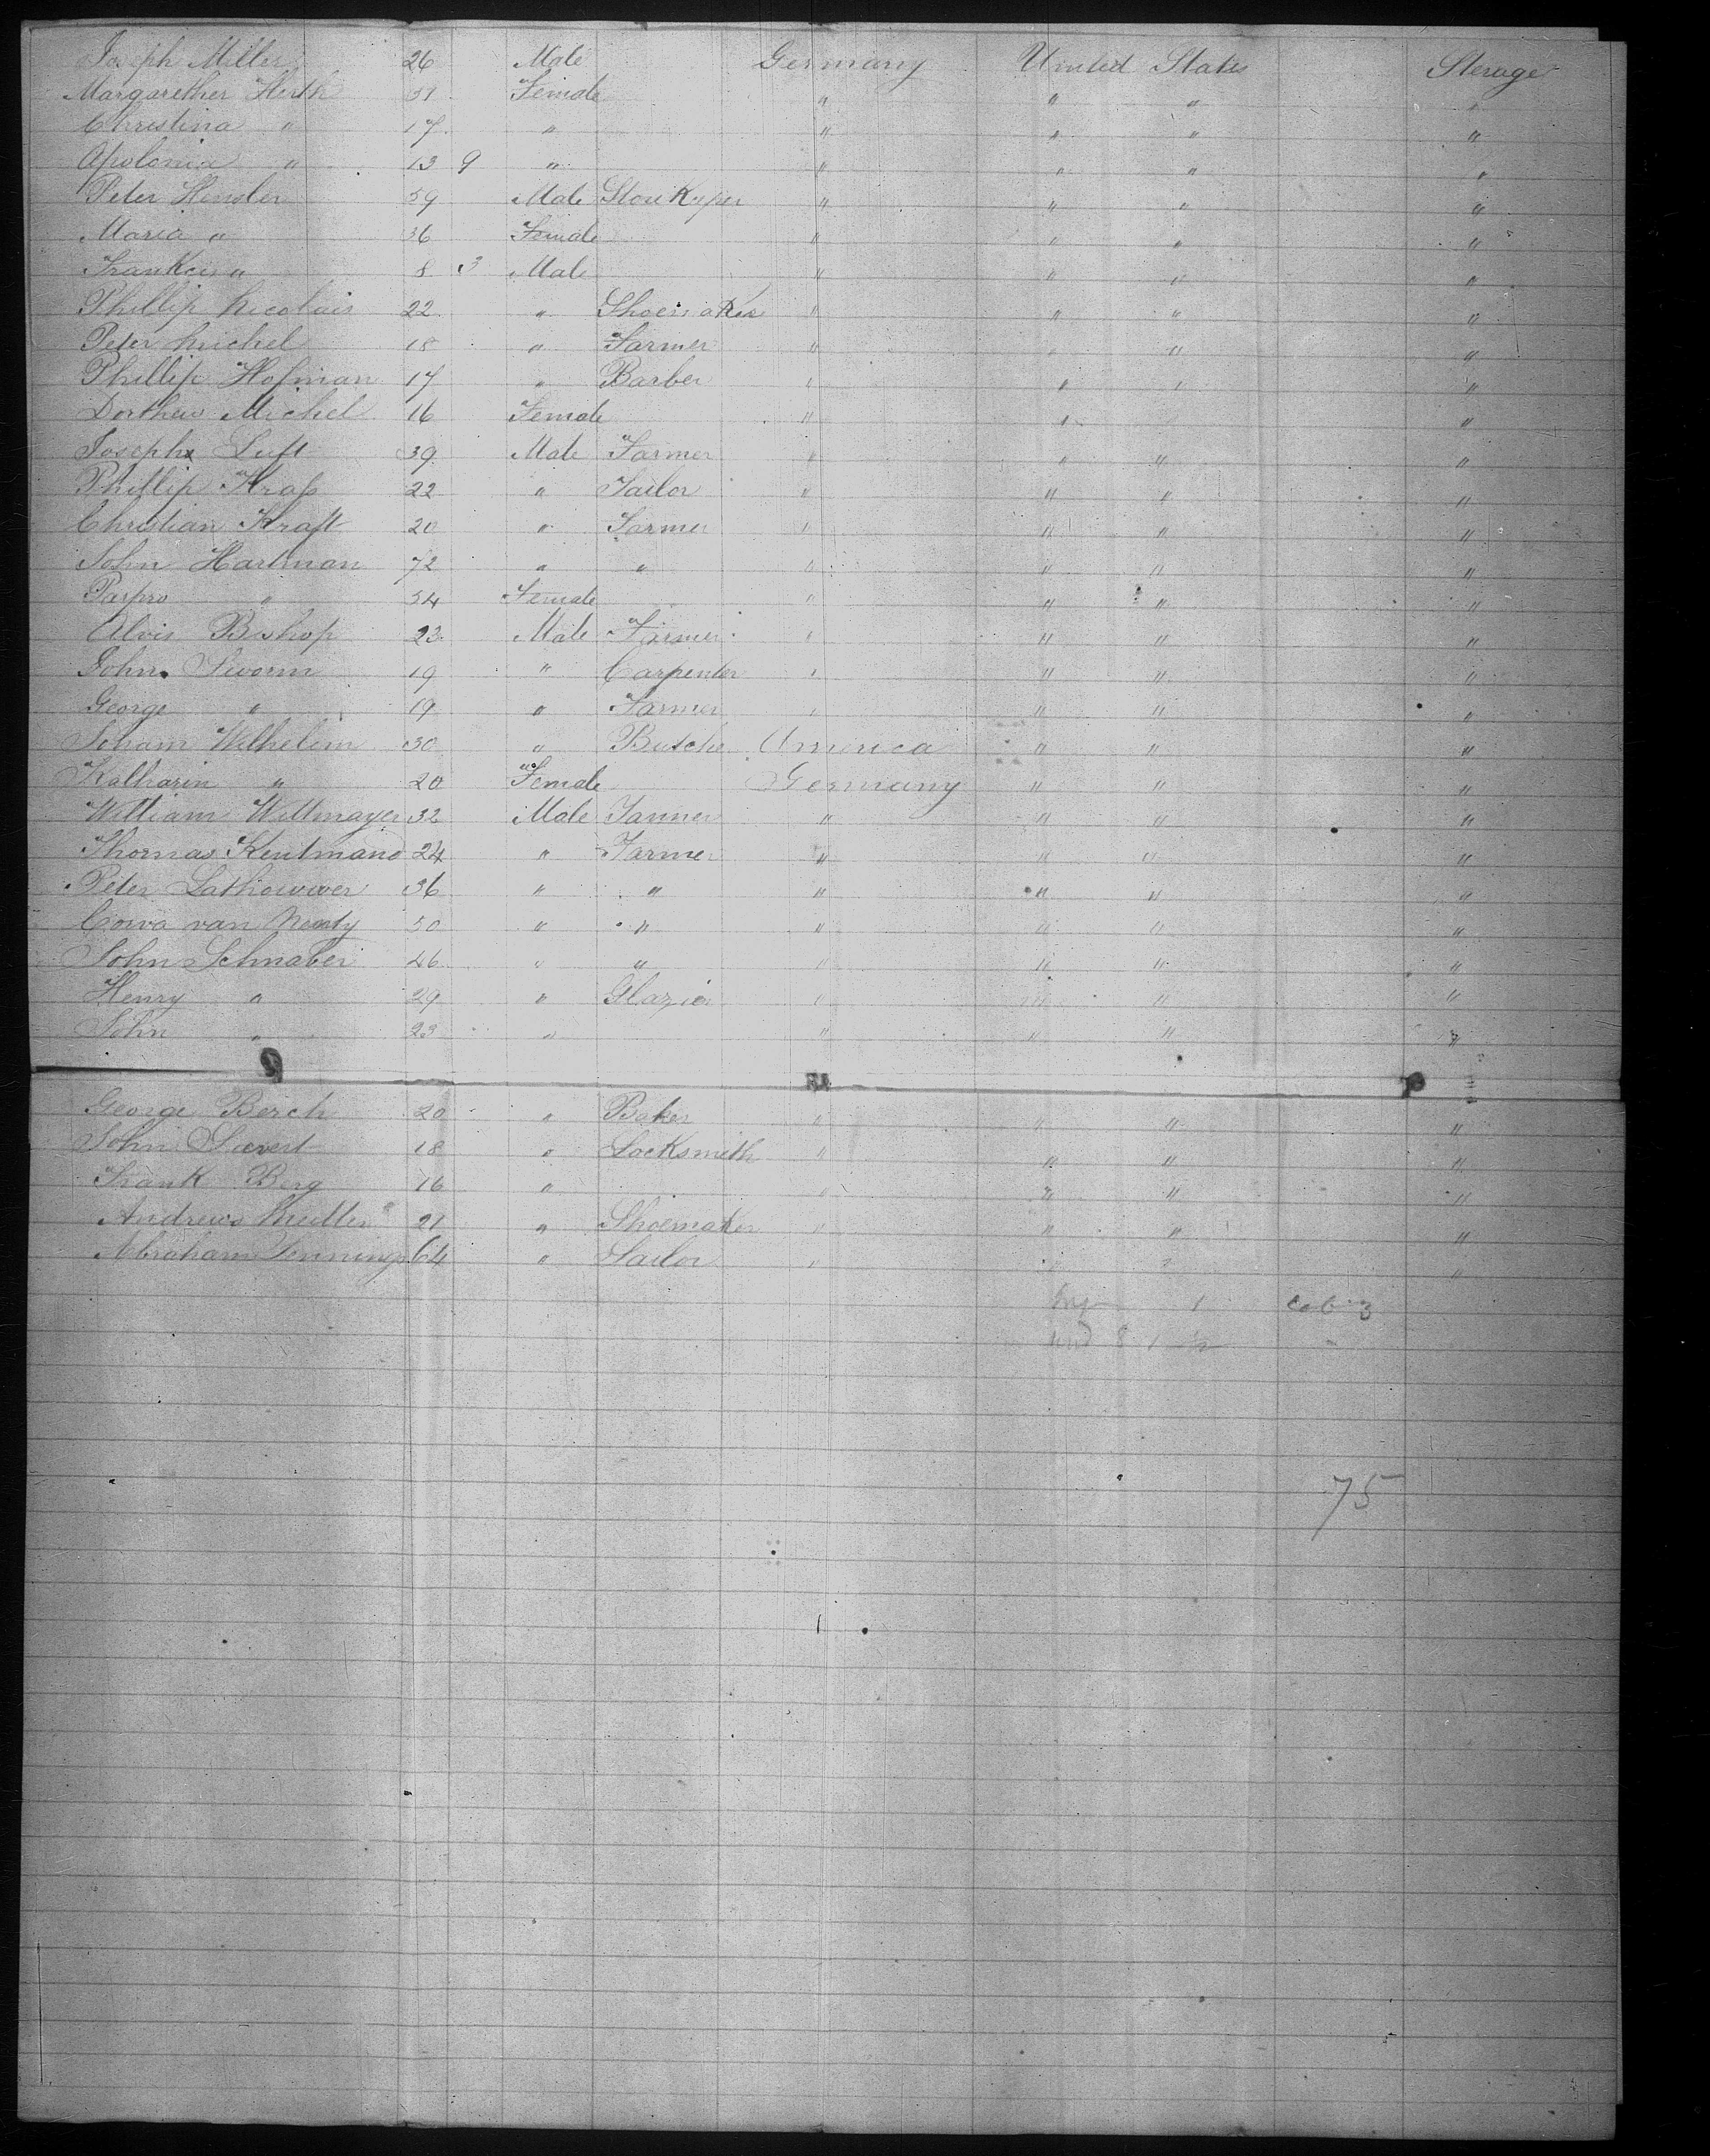 Joseph Miller 26 Male Germany United States Sterage
Margarether Herth 39 Female " " " "
Christina " 17 " " " " "
Apolonia " 13 9 " " " " "
Peter Hensler 59 Male Store Keper " " " "
Maria " 36 Female " " " "
" 8 3 Male " " " "
Phillip Nicolais 22 " Shoemaker " " " "
Peter Michel 18 " Farmer " " " "
Phillip Hofman 17 " Barber " " " "
Dorthew Michel 16 Female " " " "
Joseph Luft 39 Male Farmer " " " "
Phillip Kraß 22 " Tailor " " " "
Christian Kraft 20 " Farmer " " " "
John Hartman 72 " " " " " "
" 54 Female " " " "
Alvis Bishop 23 Male Farmer " " " "
John Sworm 19 " Carpenter " " " "
George " 19 " Farmer " " " "
Joham Wilhelim 30 " Butche America " " "
Katharin " 20 Female Germany " " "
William Willmayer 32 Male Farmer " " " "
Thomas Kentmand 24 " Farmer " " " "
Peter Lathouwer 36 " " " " " "
van 50 " " " " " "
John Schnaber 46 " " " " " "
Henry " 29 " Glazier " " " "
John " 23 " " " " "
George Berch 20 " Baker " " " "
John Sievert 18 " Locksmith " " " "
Frank Berg 16 " " " " "
Andrews Mutler 21 " Shoemaker " " " "
Abraham Jennings 64 " Sailor " " " "
1 3
8 1
75